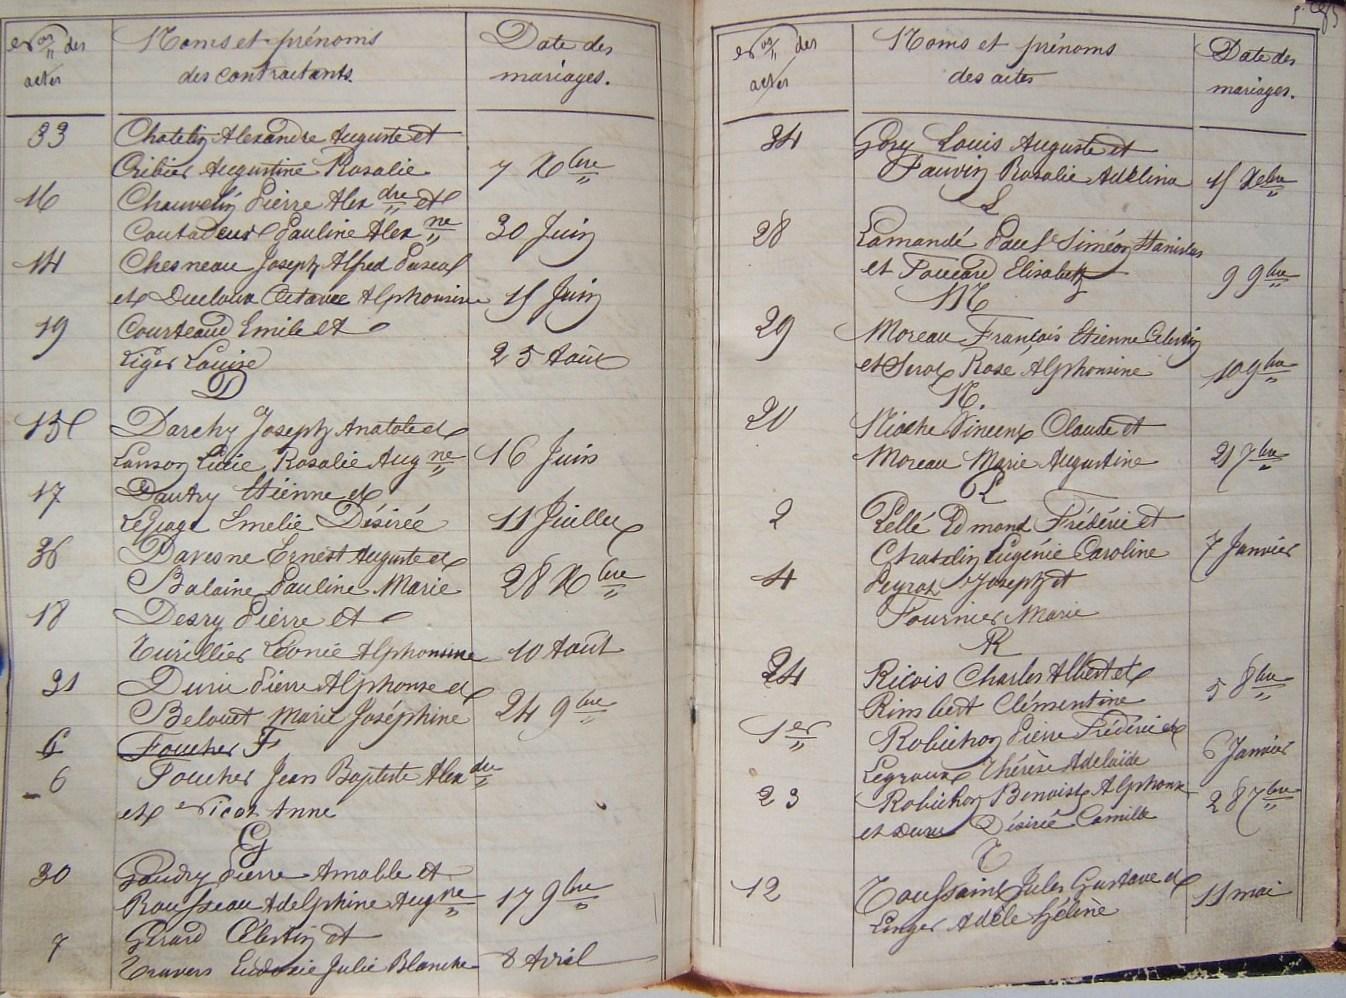 Nos des actes
Noms et prénoms des contractants
Date des mariages.
33 Chatelin Alexandre Auguste et
Cribier Augustine Rosalie 7 Xbre
16 Chauvelin Pierre Alexdre et
Pauline Alexne 30 Juin
14 Chesneau Joseph Alfred Pascal
et Ducloux Octavie Alphonsine 15 Juin
19 Courteaud Emile et
Liger Louise 25 Août
D
15 Darchy Joseph Anatole et
Lanson Lucie Rosalie Augne 16 Juin
17 Dautry Etienne et
Lepage Emelie Désirée 11 Juillet
36 Davesne Ernest Auguste et
Balaine Pauline Marie 28 Xbre
18 Desry Pierre et
Turillier Léonie Alphonsine 10 Août
31 Pierre Alphonse et
Belouet Marie Joséphine 24 9bre
6 Foucher F
6 Foucher Jean Baptiste Alexdre
et Nicot Anne
G
30 Gaudry Pierre Amable et
Rousseau Adelphine Augne 17 9bre
7 Gérard Célestin et
Travers Eudoxie Julie Blanche 8 Avril
Nos des actes
Noms et prénoms des actes
Date des mariages.
34 Gory Louis Auguste et
Fauvin Rosalie Adelina 15 Xbre
L
28 Lamandé Paul Siméon Stanislas
et Foucard Elisabeth 9 9bre
M
29 Moreau François Etienne Célestin
et Rose Alphonsine 10 9bre
N
20 Nioche Vincent Claude et
Moreau Marie Augustine 21 7bre
P
2 Pellé Edmond Frédéric et
Chatelin Eugénie Caroline 7 Janvier
4 Peyrot Joseph et
Fournier Marie
R
24 Ricois Charles Albert et
Rimbert Clémentine 5 8bre
1er Robichon Pierre Frédéric et
Legroux Thérèse Adelaïde 6 Janvier
23 Robichon Benoist Alphonse
et Désirée Camille 28 7bre
T
12 Toussaint Jules Gustave et
Linger Adèle Hélène 11 mai